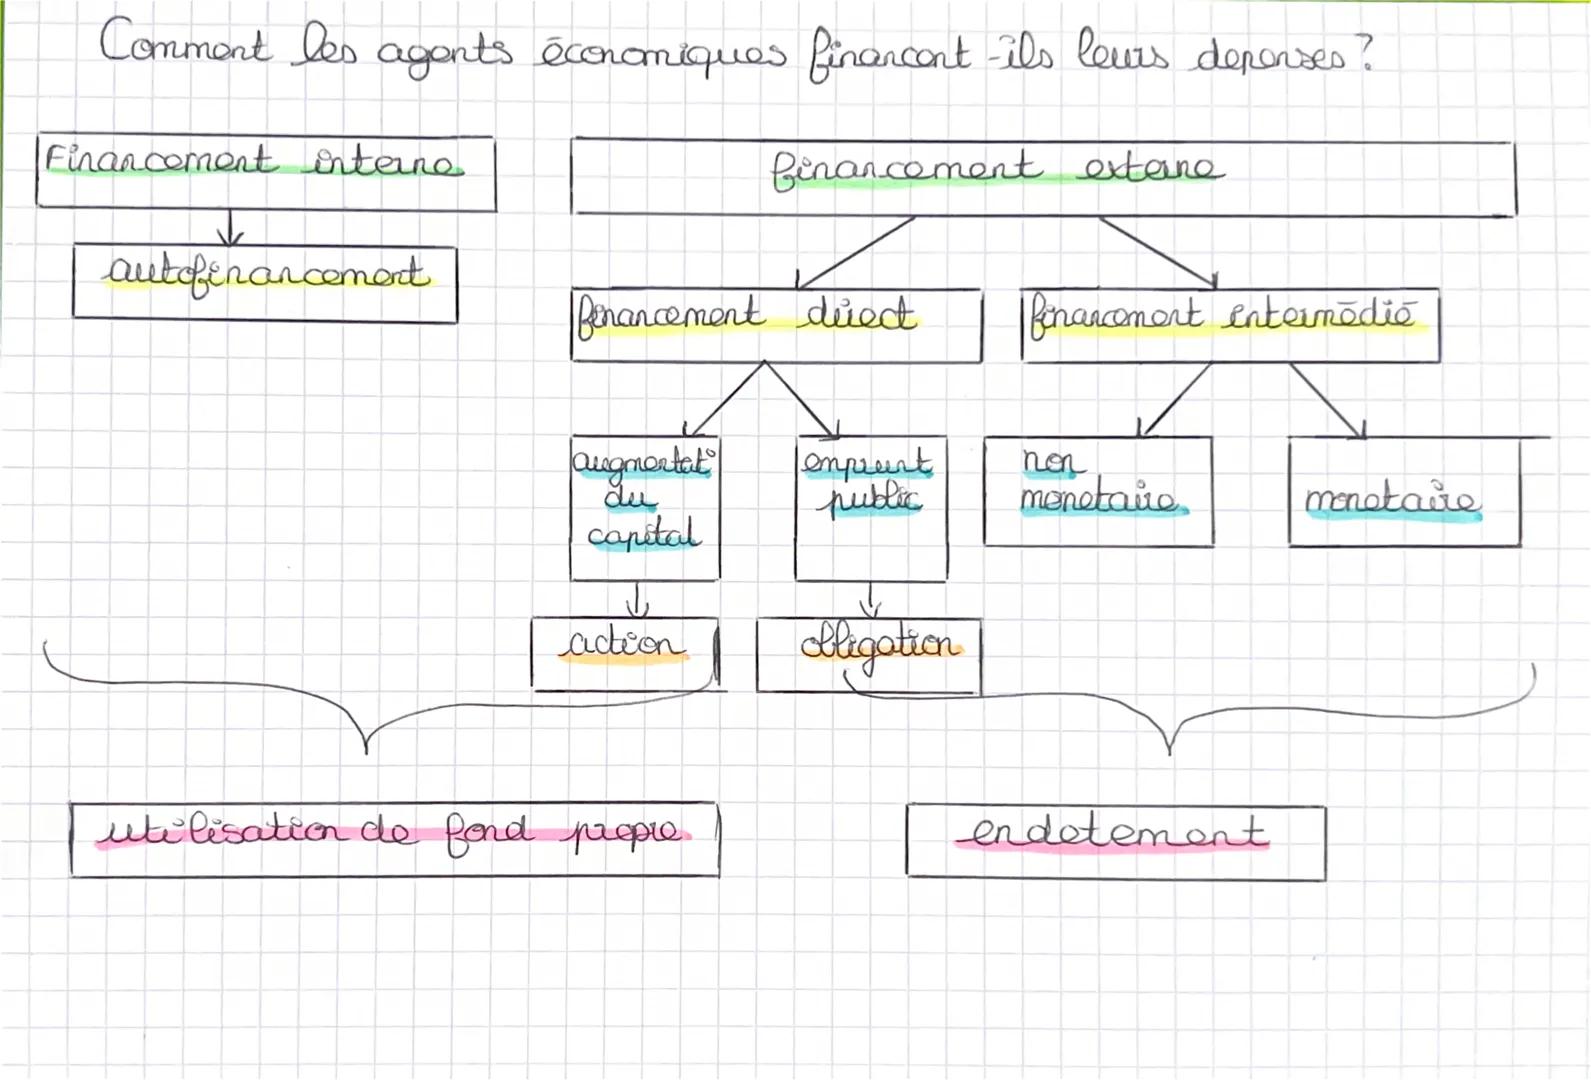 Comment les agents économiques financent-ils leurs depenses?
Financement interne
financement externe
autofinancement
financement direct
financement intermédié
augmentat°
du
capital
emprunt
public
non
monetaire
monetaire
action
obligation
utilisation de fond propre
endetement